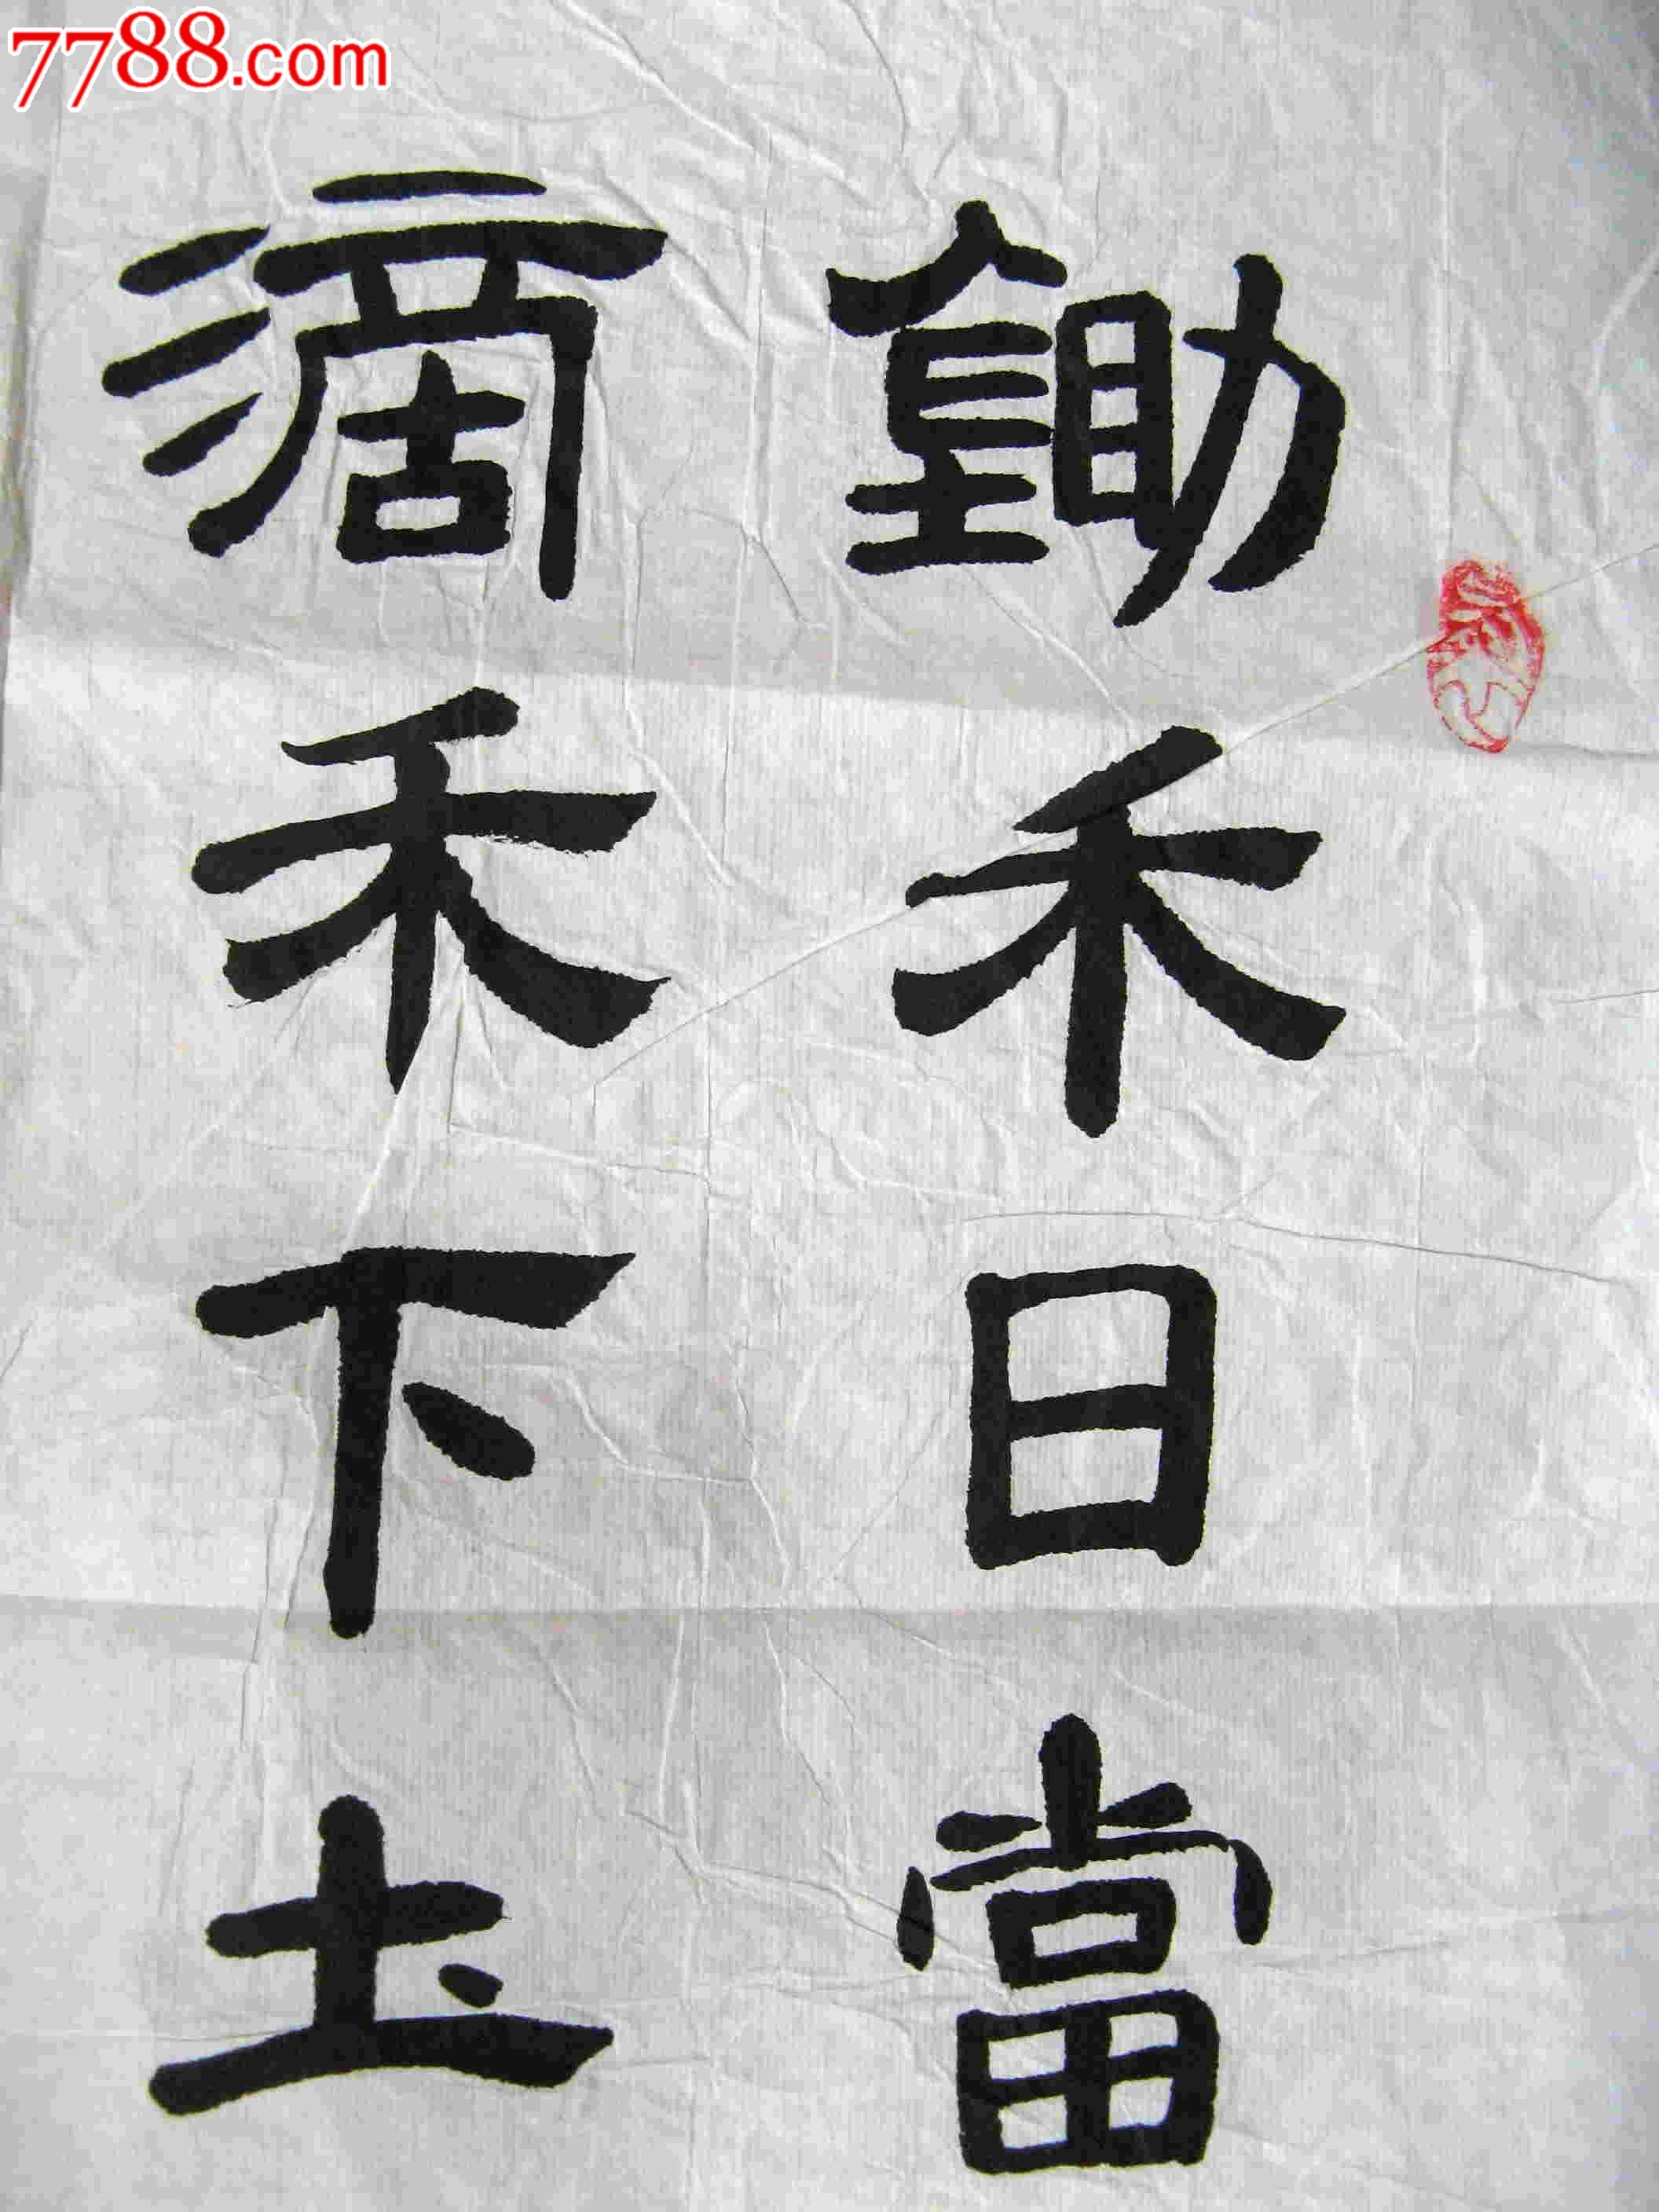 7788.com
鋤禾日當
滴禾下土